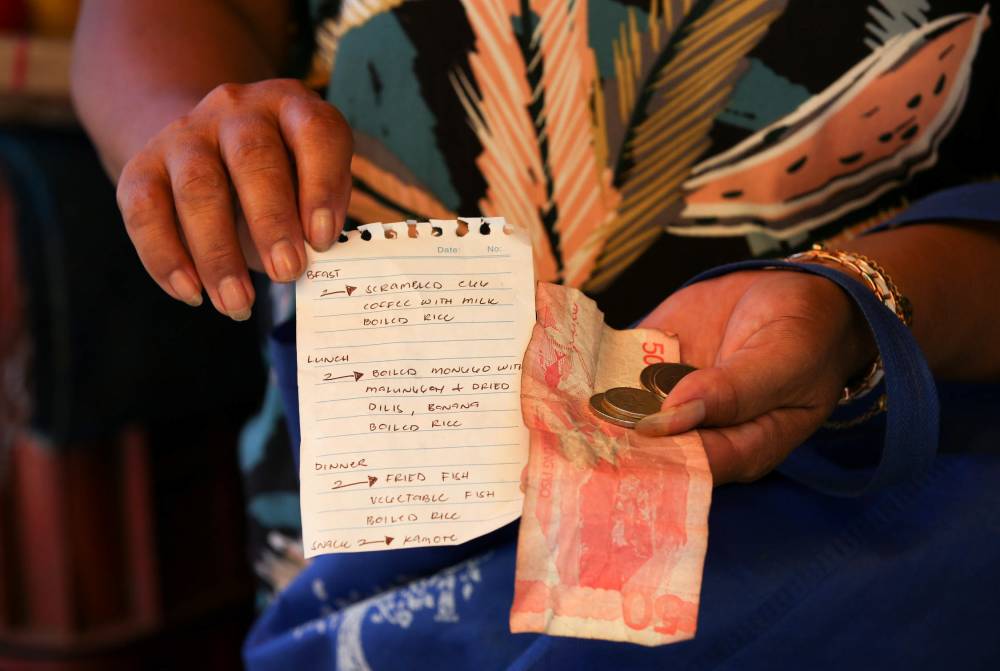 Date: No:
BFAST
2 → SCRAMBLED EGG
COFFEE WITH MILK
BOILED RICE
LUNCH
2 → BOILED MONGGO WITH
MALUNGGAY & DRIED
DILIS, BANANA
BOILED RICE
DINNER
2 → FRIED FISH
VEGETABLE FISH
BOILED RICE
SNACK 2 → KAMOTE
50
50